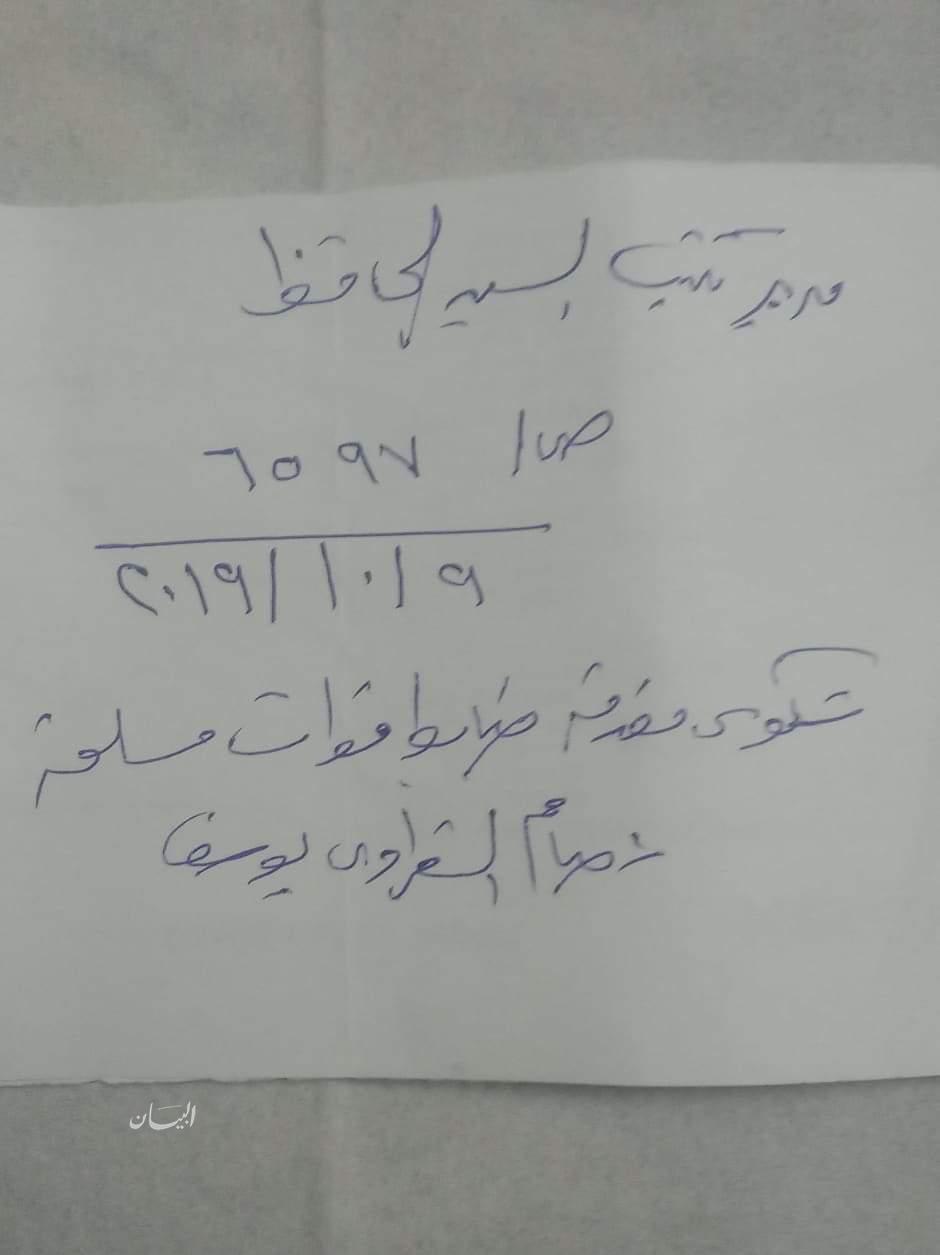 مدير مكتب السيد المحافظ
ص/ ٦٥٩٧
٢٠١٩/١٠/٩
شكوى مقدمة ضباط قوات مسلحة
عصام الشعراوى يوسف
البيان